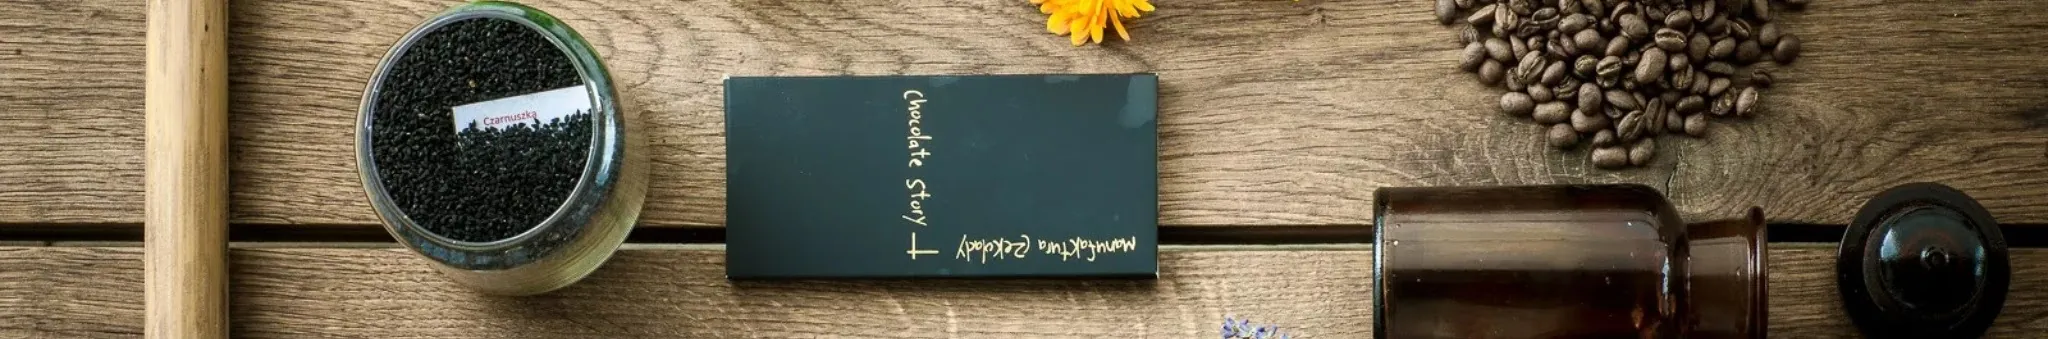 Czarnuszka
chocolate story
Manufaktura Czekolady